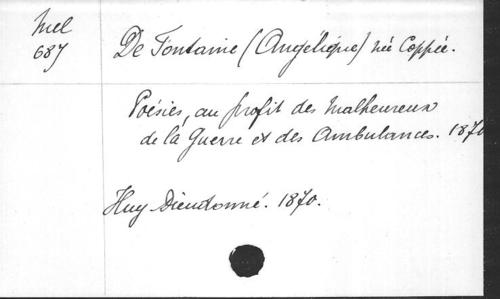 Mel
687
De Fontaine (Angélique) née Coppée.
Poésies, au profit des Malheureux
de la Guerre et des Ambulances. 1870
Huy Dieudonné. 1870.